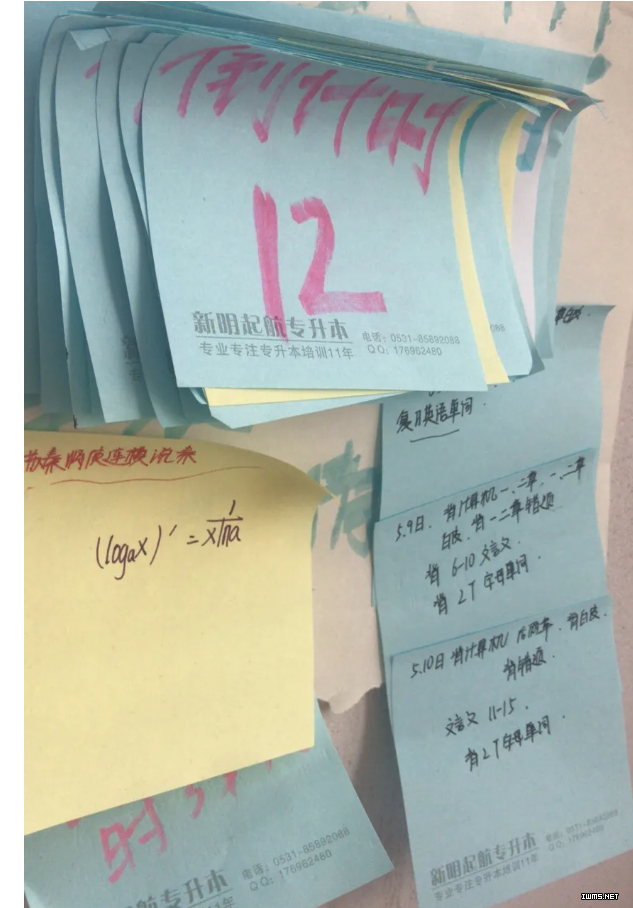 倒计时
12
新明起航专升本
专业专注专升本培训11年
电话：0531-85892088
QQ：176962480
复习英语单词
(logax)′ = 1/xlna
5.9日. 背计算机一、二章, 一、二章
白皮. 背一二章错题
背 6-10 文言文
背 2个字母单词.
5.10日 背计算机
背白皮.
背错题.
文言文 11-15.
背2个字母单词.
时
新明起航专升本
电话：0531-85892088
QQ：176962480
新明起航专升本
专业专注专升本培训11年
电话：0531-85892088
QQ：176962480
IWMS.NET